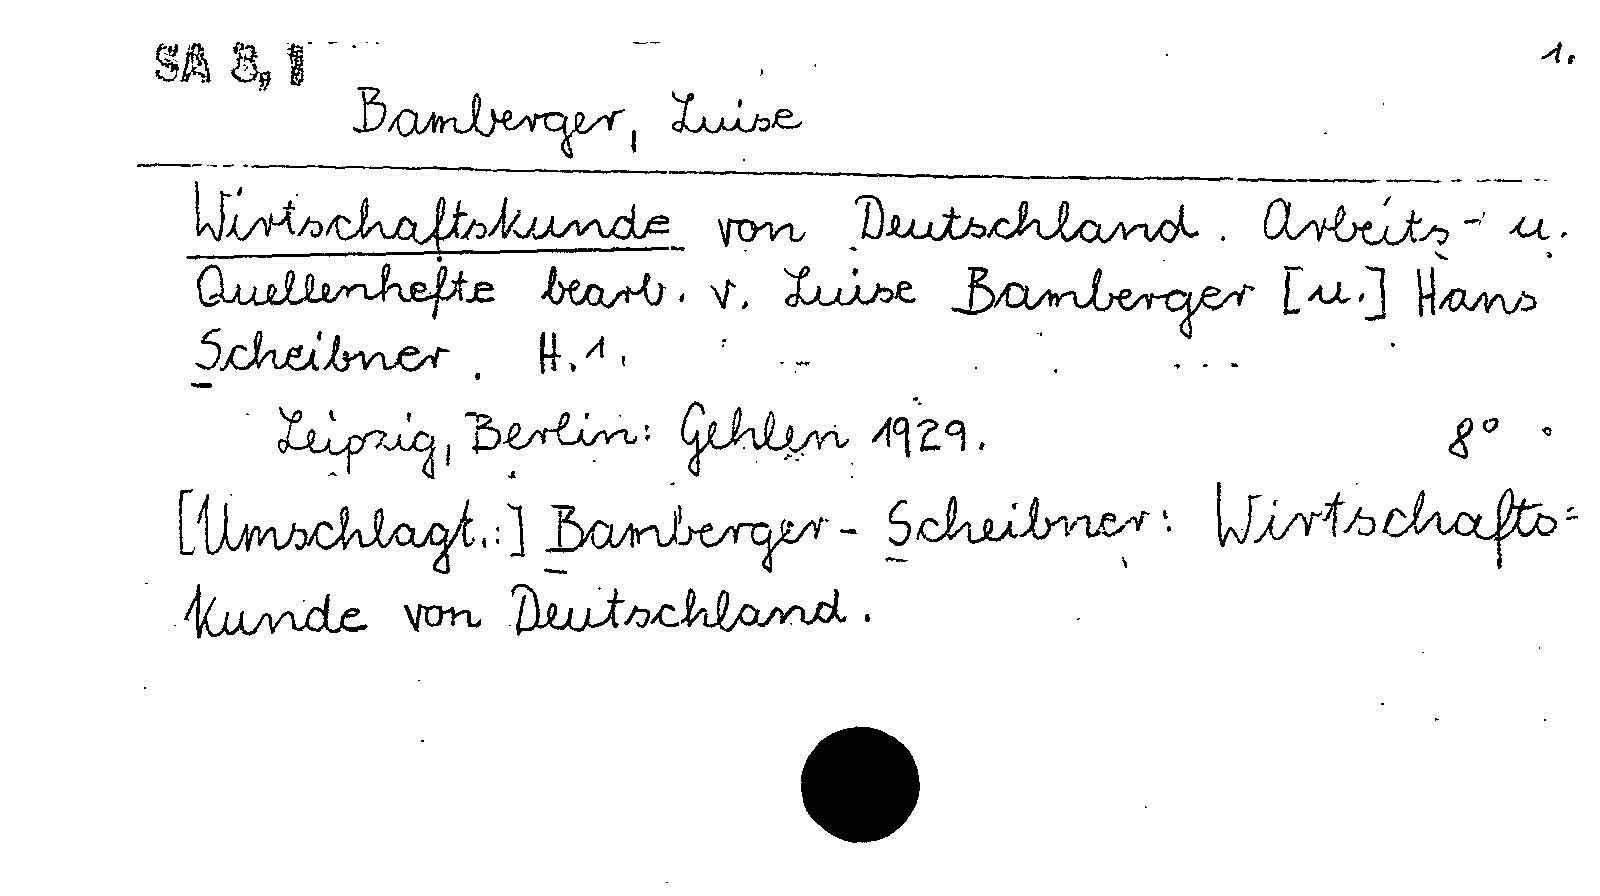 SA 8, I
1.
Bamberger, Luise
Wirtschaftskunde von Deutschland. Arbeits- u.
Quellenhefte bearb. v. Luise Bamberger [u.] Hans
Scheibner. H.1.
Leipzig, Berlin: Gehlen 1929. 8°
[Umschlagt.:] Bamberger-Scheibner: Wirtschafts=
kunde von Deutschland.